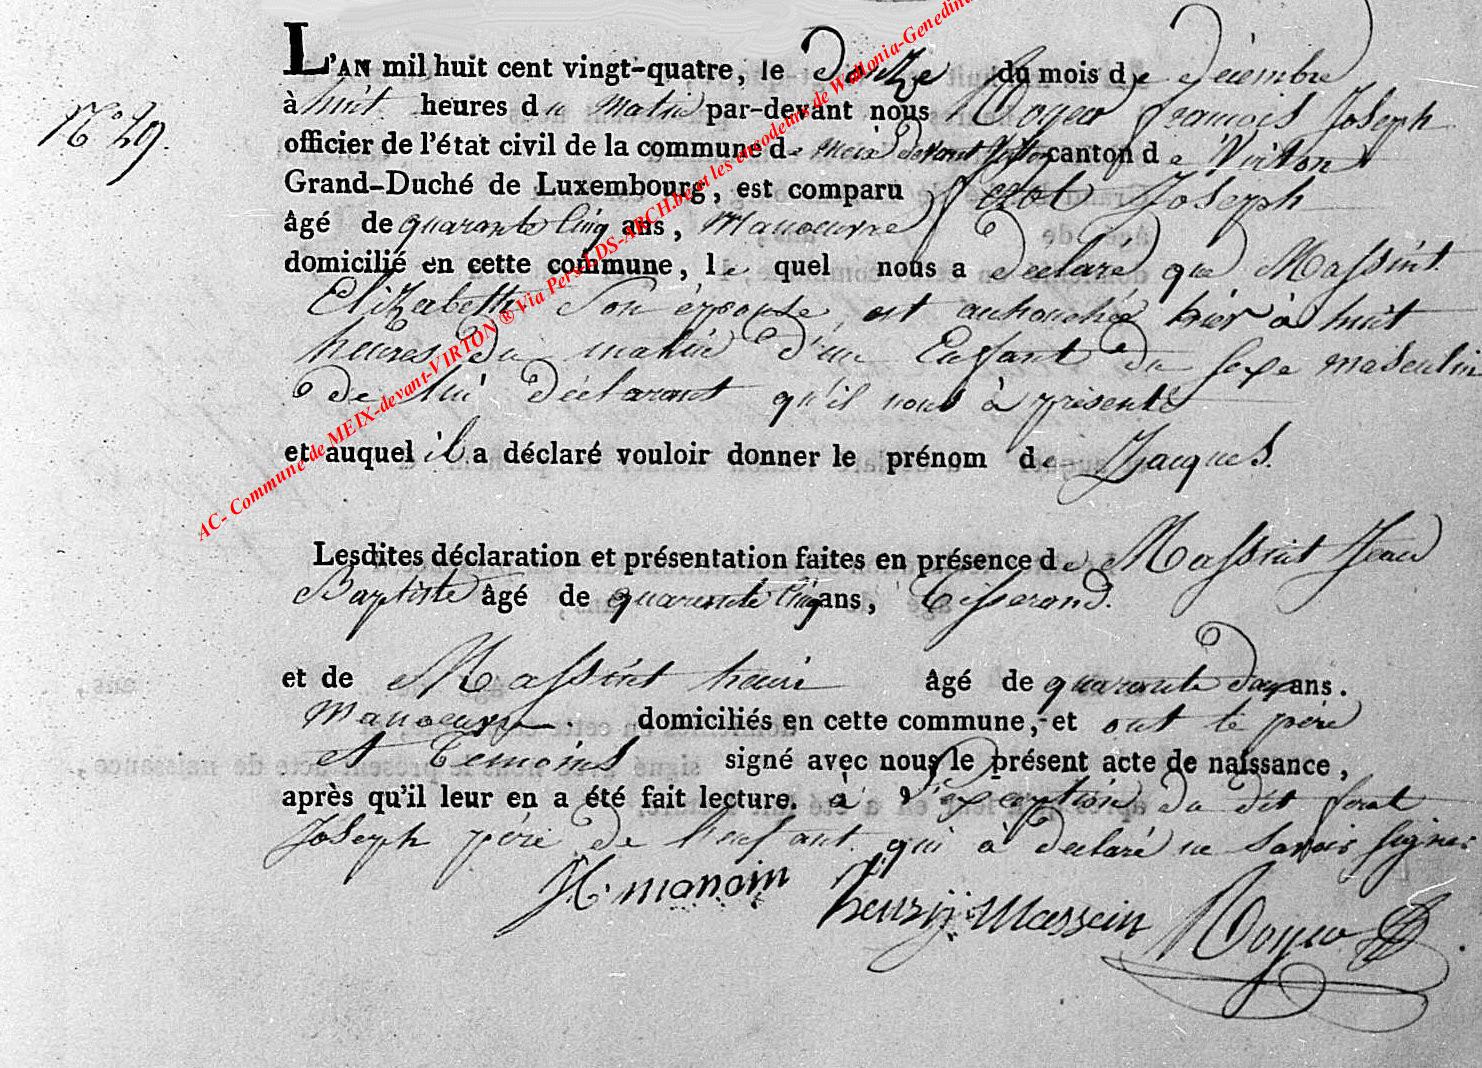 L'AN mil huit cent vingt-quatre, le douze du mois de décembre
à huit heures du matin par-devant nous Royer francois Joseph
N° 29.
officier de l'état civil de la commune de meix devant Virton canton de Virton
Grand-Duché de Luxembourg, est comparu ferot Joseph
âgé de quarante cinq ans, Manoeuvre
domicilié en cette commune, le quel nous a déclaré que Massint
Elizabeth Son épouse est accouchée hier à huit
heures du matin d'un Enfant du sexe masculin
de lui déclarant qu'il nous à présenté
et auquel il a déclaré vouloir donner le prénom de Jacques.
Lesdites déclaration et présentation faites en présence de Massint Jean
Baptiste âgé de quarante cinq ans, Tisserand.
et de Massint henri âgé de quarante deux ans.
Manoeuvre. domiciliés en cette commune, et ont le père
et temoins signé avec nous le présent acte de naissance,
après qu'il leur en a été fait lecture. à l'exception du dit ferot
Joseph père de l'enfant qui à déclaré ne savoir signer
henry massein Royer
AC- Commune de MEIX-devant-VIRTON ® Via Pers-LDS-ARCH.be et les encodeurs de Wallonia-Genedina